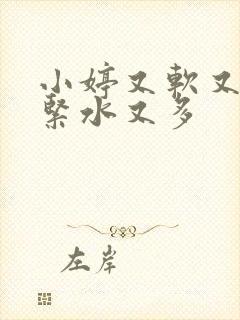 小婷又軟又
緊水又多
左岸